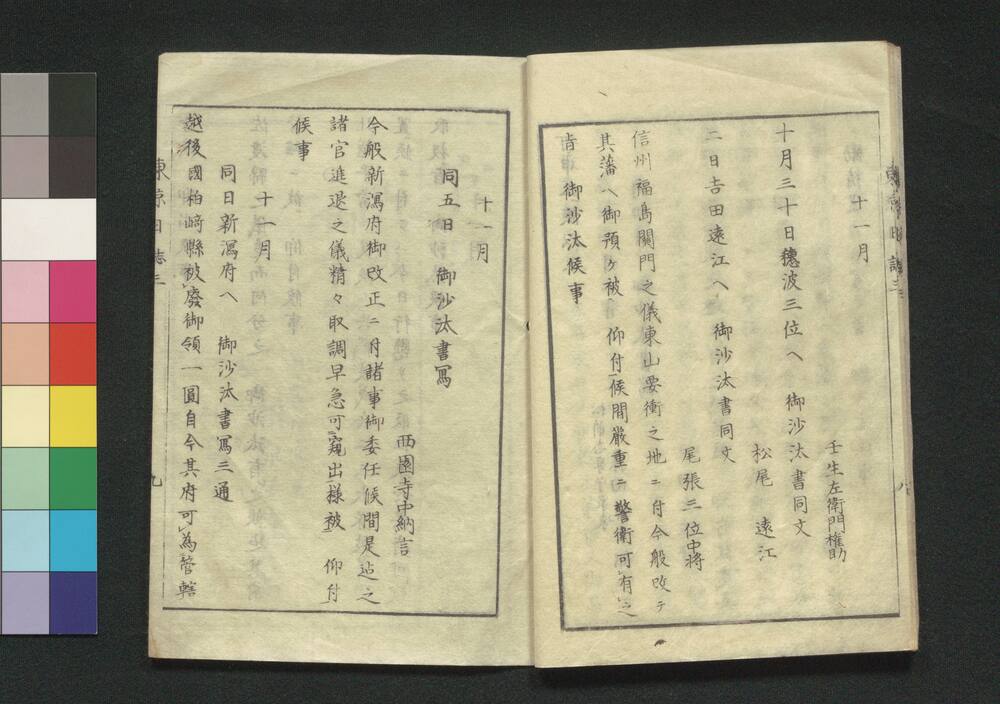 十一月
壬生左衛門権助
十月三十日穂波三位ヘ　御沙汰書同文
松尾　遠江
二日吉田遠江ヘ　御沙汰書同文
尾張三位中将
信州福島関門之儀東山要衝之地ニ付今般改テ
其藩ヘ御預ケ被　仰付候間嚴重ニ警衛可有之
旨御沙汰候事
十一月
同五日　御沙汰書冩
西園寺中納言
今般新潟府御改正ニ付諸事御委任候間是迄之
諸官進退之儀精々取調早急可窺出様被　仰付
候事
十一月
同日新潟府ヘ　御沙汰書冩三通
越後國柏崎縣被廢御領一圓自今其府可為管轄
東京日誌三
九